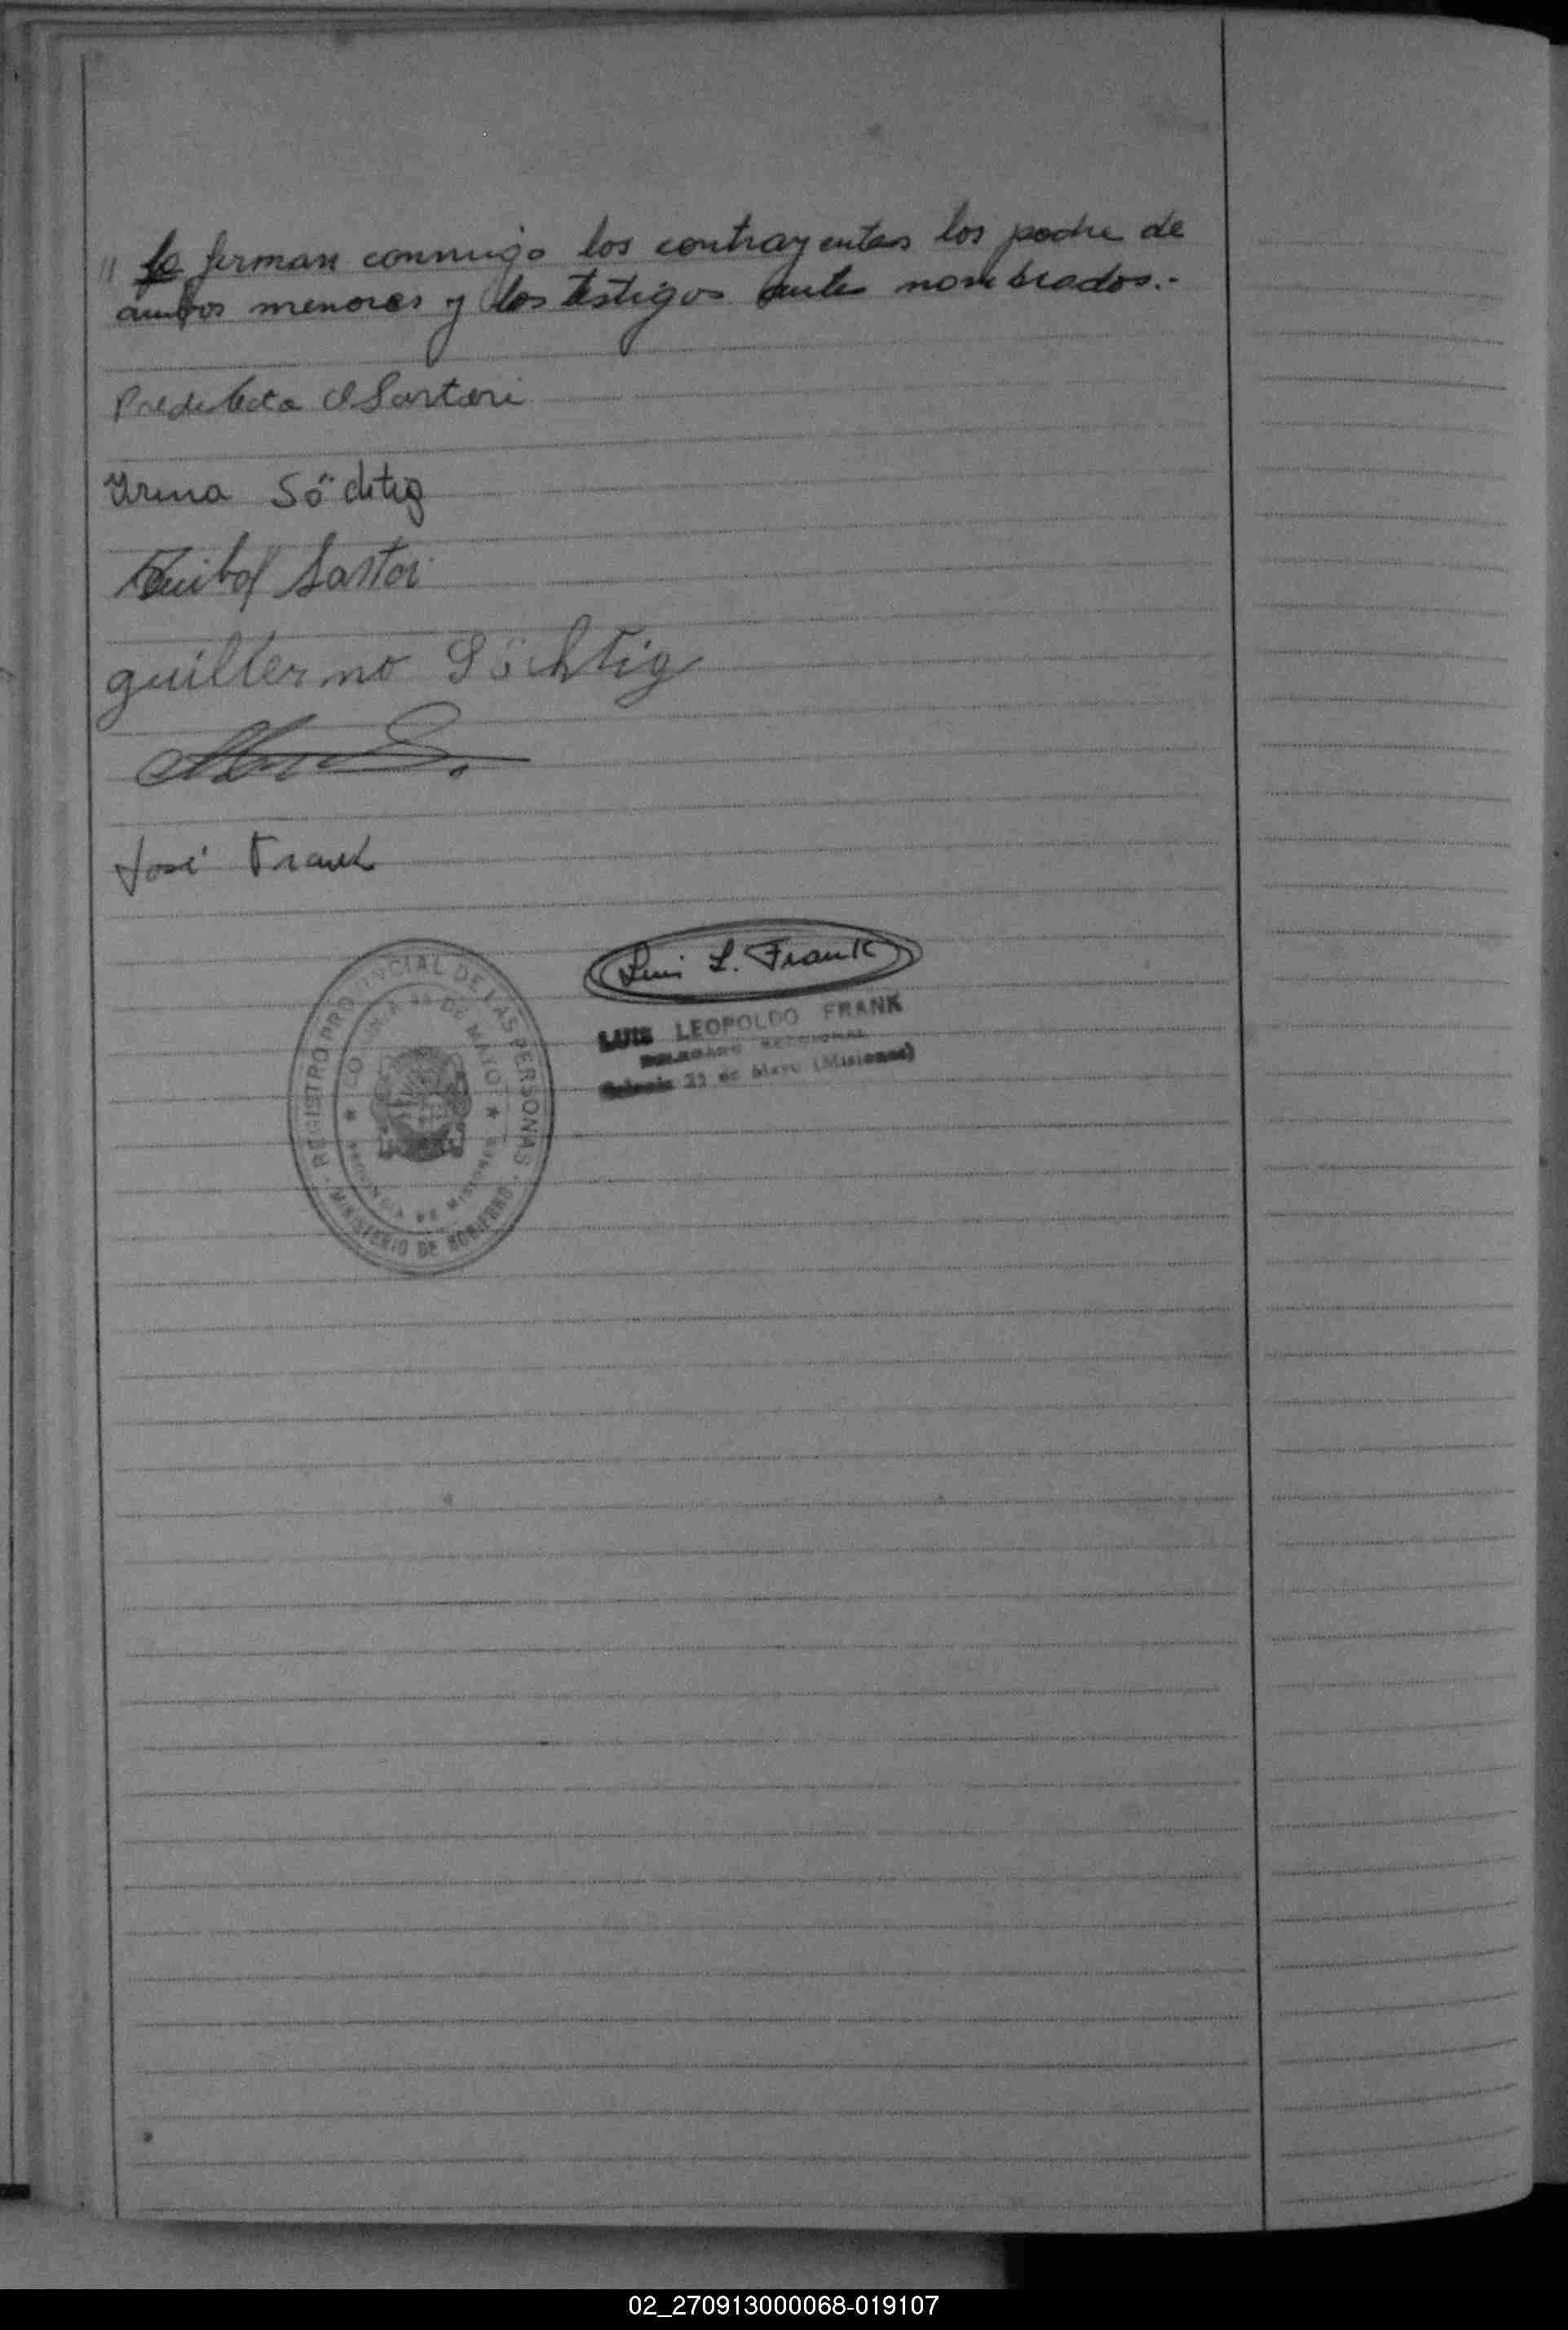 " la firman conmigo los contrayentes los padre de
ambos menores y los testigos antes nombrados.-
O Sartori
Irena Söchtig
Sartori
guillermo Söchtig
José Frank
Luis L. Frank
LUIS LEOPOLDO FRANK
DELEGADO SECCIONAL
Colonia 25 de Mayo (Misiones)
REGISTRO PROVINCIAL DE LAS PERSONAS
COLONIA 25 DE MAYO
PROVINCIA DE MISIONES
MINISTERIO DE GOBIERNO
02_270913000068-019107